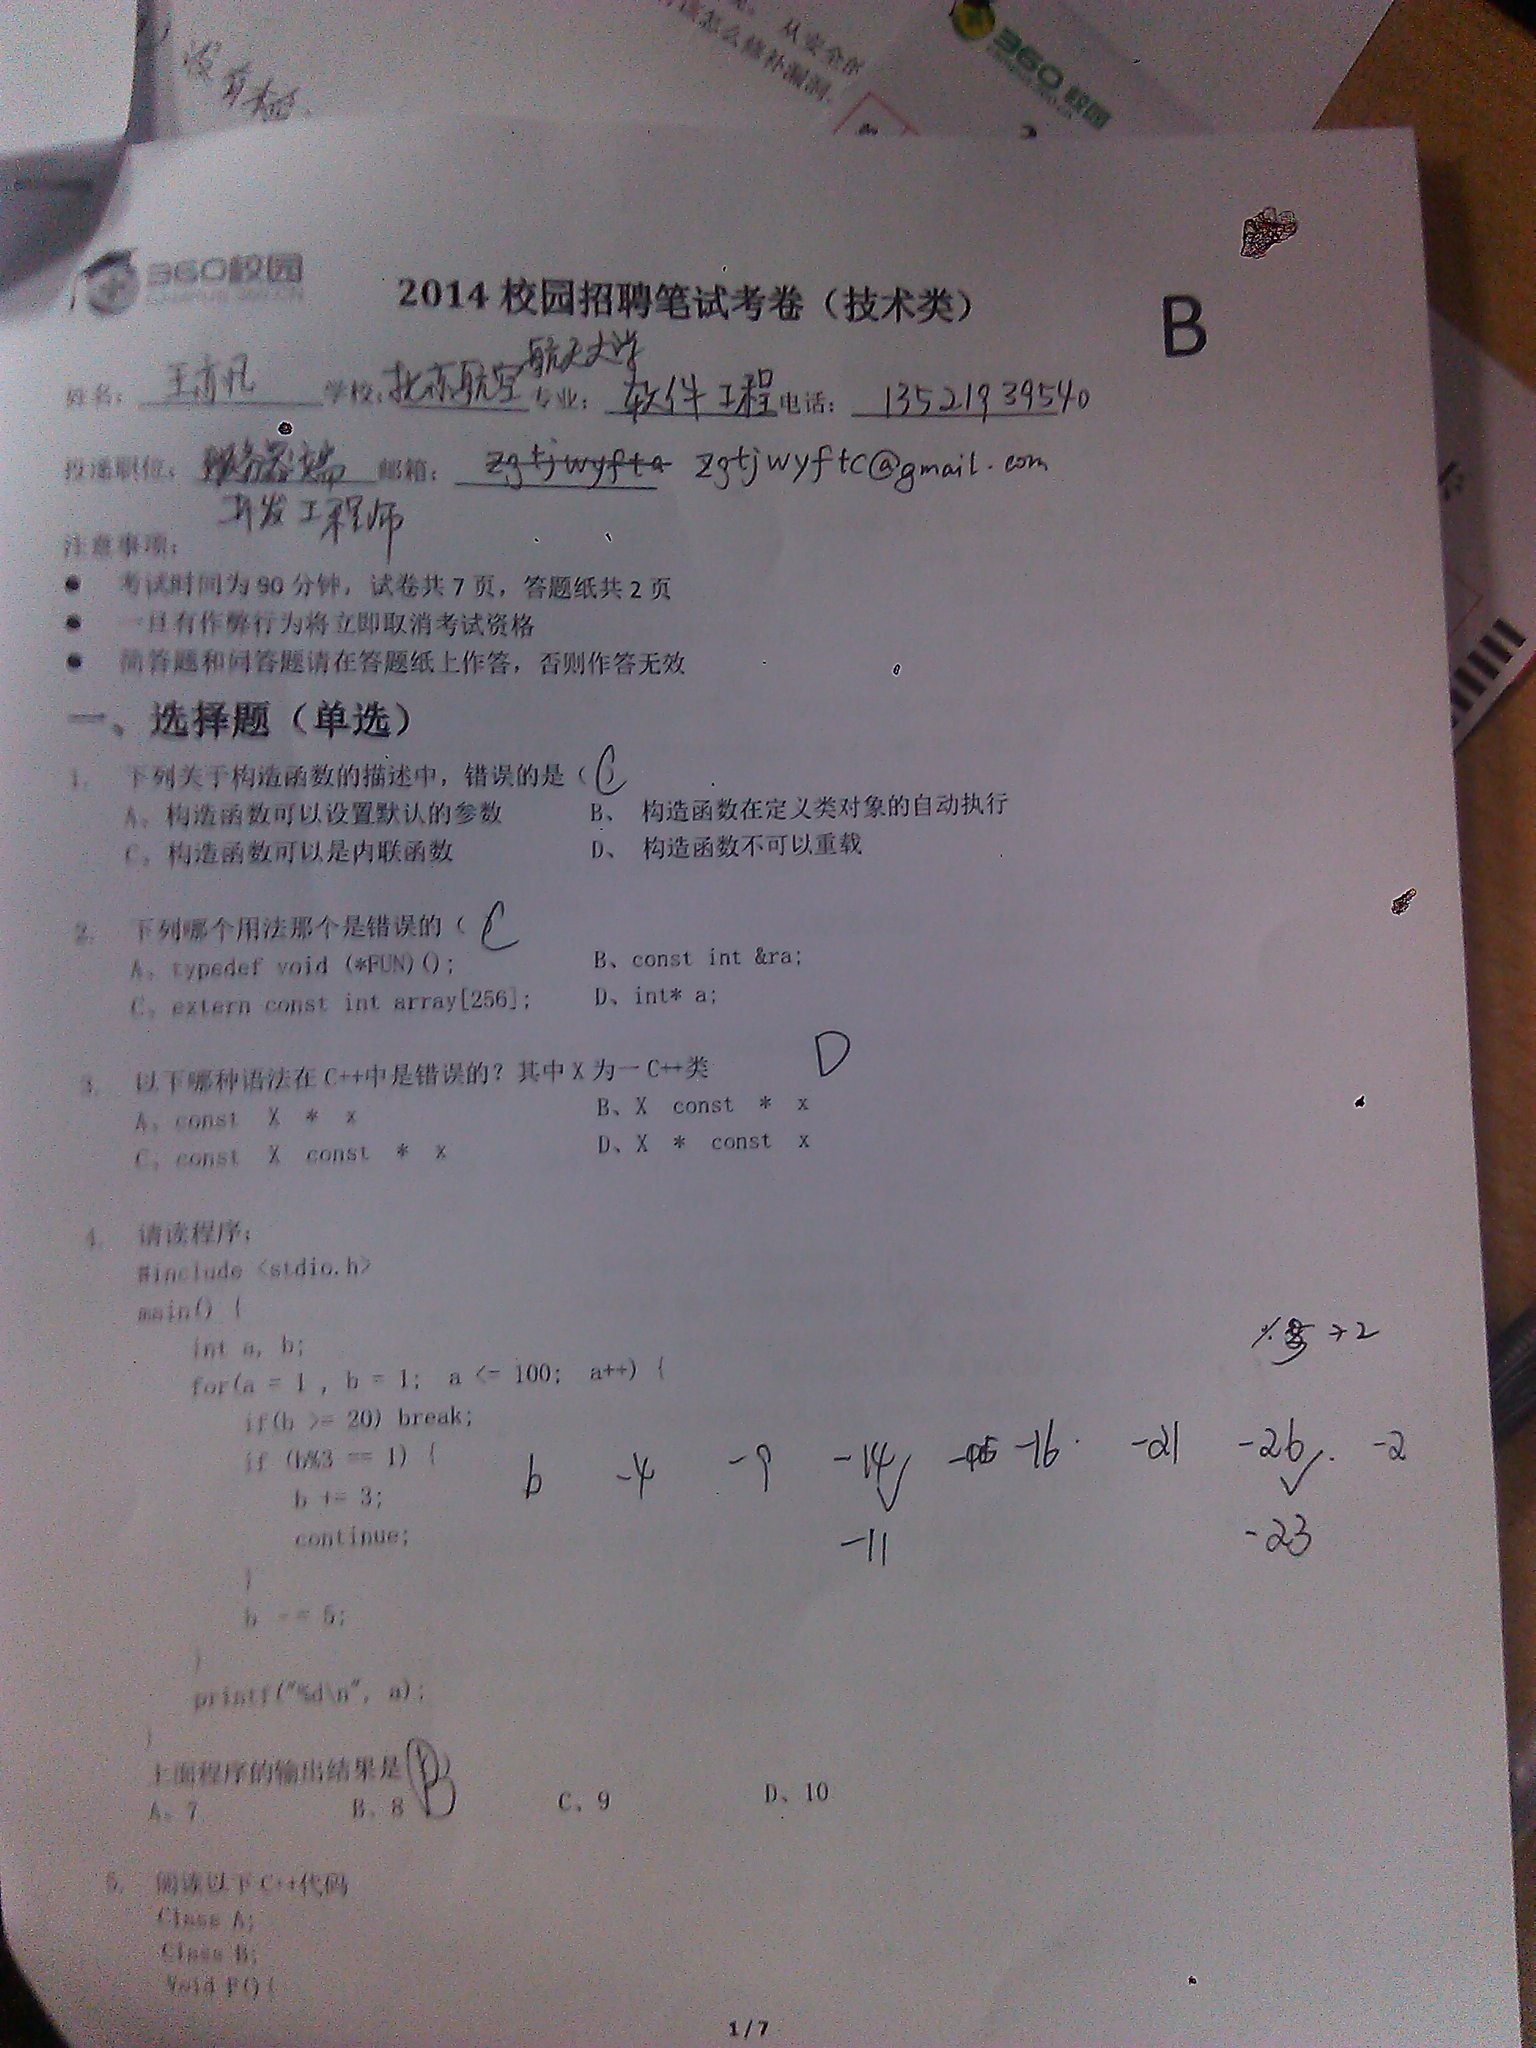 没有
从安全的
该怎么修补漏洞.
360校园
360校园
2014 校园招聘笔试考卷（技术类）
B
航天大学
姓名： 王亦凡 学校： 北京航空 专业： 软件工程 电话： 13521939540
投递职位： 服务器端 邮箱： zgtjwyfta zgtjwyftc@gmail.com
开发工程师
注意事项：
● 考试时间为 90 分钟，试卷共 7 页，答题纸共 2 页
● 一旦有作弊行为将立即取消考试资格
● 简答题和问答题请在答题纸上作答，否则作答无效
一、选择题（单选）
1. 下列关于构造函数的描述中，错误的是（ C ）
A、构造函数可以设置默认的参数 B、 构造函数在定义类对象的自动执行
C、构造函数可以是内联函数 D、 构造函数不可以重载
2. 下列哪个用法那个是错误的（ C
A、typedef void (*FUN)(); B、const int &ra;
C、extern const int array[256]; D、int* a;
3. 以下哪种语法在 C++中是错误的？其中 X 为一 C++类 D
A、const X * x B、X const * x
C、const X const * x D、X * const x
4. 请读程序：
#include <stdio.h>
main() {
int a, b;
→2
for(a = 1 , b = 1; a <= 100; a++) {
if(b >= 20) break;
if (b%3 == 1) {
b -4 -9 -14 -16 -21 -26 -2
b += 3;
continue;
-11 -23
}
b -= 5;
}
printf("%d\n", a);
}
上面程序的输出结果是( B )
A、7 B、8 C、9 D、10
5. 阅读以下 C++代码
Class A;
Class B;
Void F(){
1 / 7